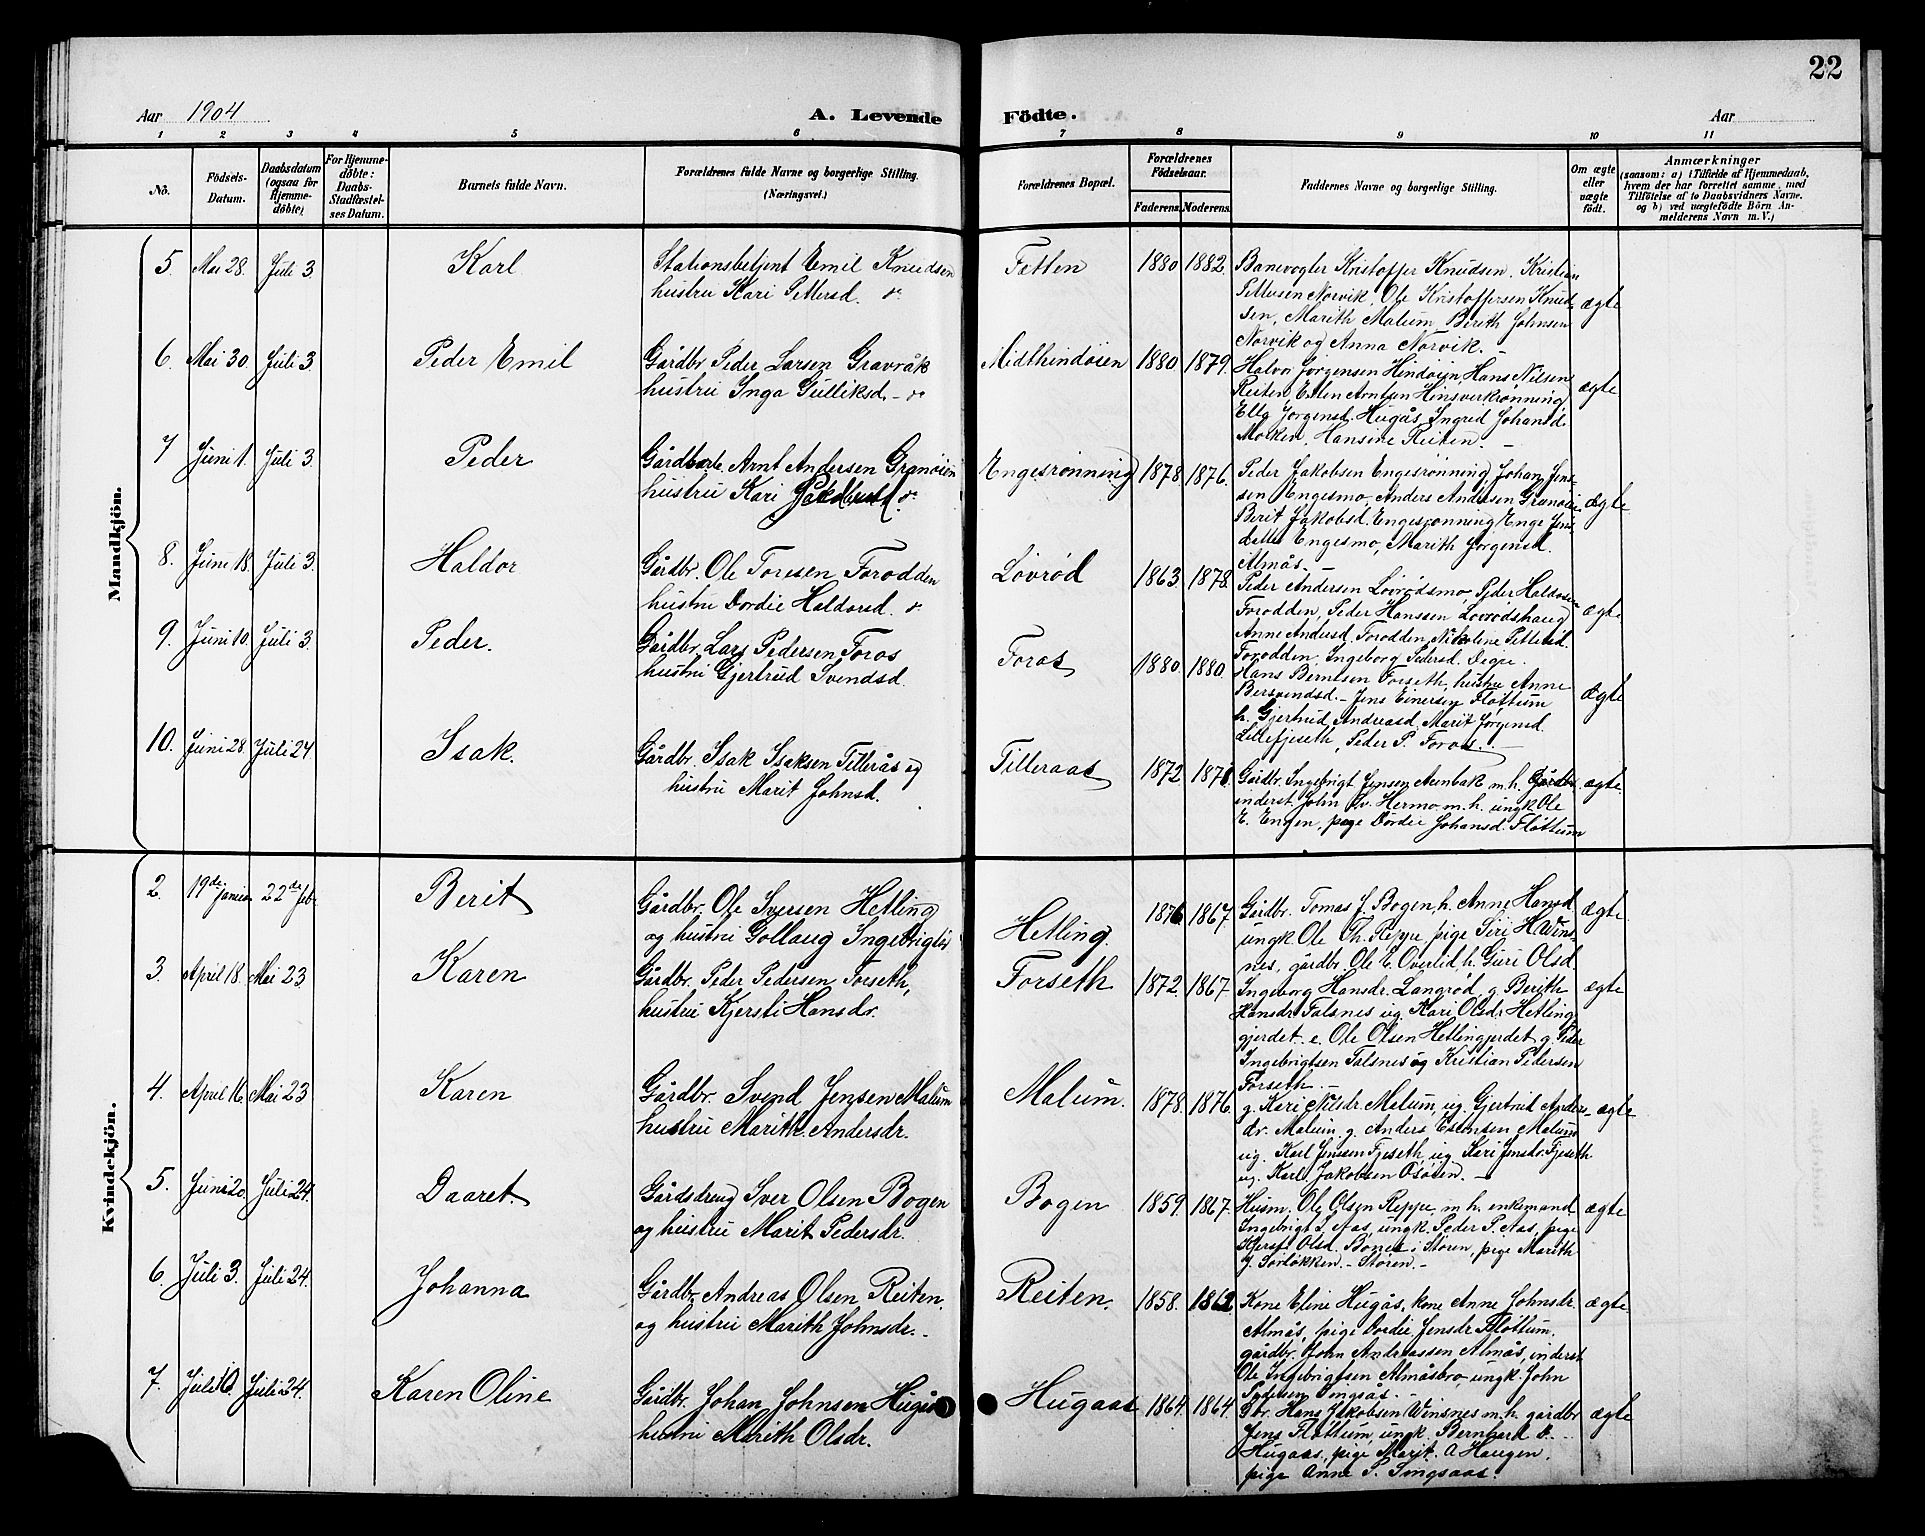 22
Aar 1904
A. Levende Födte.
Aar
1 2 3 4 5 6 7 8 9 10 11
No.
Födsels-
Datum.
Daabsdatum
(ogsaa for
Hjemme-
döbte)
For Hjemme-
döbte:
Daabs-
Stadfæstel-
ses Datum.
Barnets fulde Navn.
Forældrenes fulde Navne og borgerlige Stilling.
(Næringsvei.)
Forældrenes Bopæl.
Forældrenes
Födselsaar.
Faderens. Moderens.
Faddernes Navne og borgerlige Stilling.
Om ægte
eller
uægte
født.
Anmærkninger
(saasom: a) i Tilfælde af Hjemmedaab,
hvem der har forrettet samme, med
Tilføielse af to Daabsvidners Navne.
og b) ved uægtefödte Börn An-
melderens Navn m. V.)
Mandkjön.
5. Mai 28. Juli 3 Karl
Stationsbetjent Emil Knudsen
hustru Kari Pettersd.
Fetten 1880 1882.
Banevogter Kristoffer Knudsen, Kristian
Pettersen Norvik, Ole Kristoffersen Knud-
sen, Marith Malum, Berith Johnsen
Norvik og Anna Norvik.
ægte
6. Mai 30. Juli 3 Peder Emil
Gårdbr. Peder Larsen Gravråk
hustru Inga Gulliksd.
Midthindöien 1880 1879.
Halvor Jørgensen Hindöien, Hans Nilsen
Reiten, Esten Arntsen Hinsverkrønning
Jorgensd. Hugås, Ingrid Johansd.
Morken, Hansine Reiten.
ægte
7 Juni 1. Juli 3. Peder
Arnt Andersen Granöien
hustru Kari
Engesrønning 1878. 1876.
Peder Jakobsen Engesrønning, Johan Jens-
sen Engesmo, Anders Andersen Granöien
Berit Jakobsd. Engesrønning, Jens-
Engesmo, Marith Jørgensd.
Almås.
ægte
8. Juni 18. Juli 3. Haldor
Gårdbr. Ole Toresen Forodden
hustru Dordie Haldorsd.
Lövröd 1863 1878.
Peder Andersen Lovrødsmo, Peder Haldorsen
Forodden, Peder Hanssen Lovrødshaug
Anne Andersd. Forodden, Nikoline Pettersd.
Forodden, Ingeborg Pedersd.
ægte
9. Juni 10. Juli 3 Peder.
Gårdbr. Lars Pedersen Foros
hustru Gjertrud Svendsd.
Foros 1880. 1880.
Hans Berntsen Forseth, hustru Anne
Bersvendsd. Jens Einersen Fløttum
h. Gjertrud Andreasd. Marit Jørgensd.
Lillefjeseth, Peder P. Foros.
ægte
10. Juni 28. Juli 24 Isak.
Gårdbr. Isak Isaksen Tillerås og
hustru Marit Johnsd.
Tilleraas 1872
Gårdbr. Ingebrigt Jensen m. h.
inderst John Hermo m. h. ungk. Ole
E. Engen, pige Dordie Johansd. Fløttum
ægte.
Kvindekjön.
2. 19de januar 22de feb. Berit
Gårdbr. Ole Iversen Hetling
og hustru Gollaug
Hetling. 1876 1867.
Gårdbr. Tomas J. Bogen, h. Anne Hansd.
ungk. Ole Th. Reppe, pige Siri H. Vins-
nes, gårdbr. Ole E. Overlid, h. Guri Olsd.
ægte
3. April 18. Mai 23 Karen
Gårdbr. Peder Pedersen Forseth,
hustru Kjersti Hansdr.
Forseth 1872. 1867.
Ingeborg Hansdr. Langrød, g. Berith
Hansdr. Talsnes, ug. Kari Olsdr. Hetling-
gjerdet. e. Ole Olsen Hetlingjerdet g. Peder
Ingebrigtsen Talsnes ug Kristian Pedersen
Forseth.
ægte
4. April 16. Mai 23 Karen
Gårdbr. Svend Jensen Malum
hustru Marith Andersdr.
Malum. 1878. 1876.
g. Kari Nilsdr. Malum, ug. Gjertrud Anders-
dr. Malum. g. Anders Estensen Malum
ug. Karl Jenssen Fjeseth, ug. Kari Jensdr. Fjeseth
ug. Karl Jakobsen
ægte
5. Juni 20. Juli 24. Daaret.
Gårdsdreng Iver Olsen Bogen
og hustru Marit Pedersdr.
Bogen 1859. 1867.
Husm. Ole Olsen Reppe, m. h. enkemand
Ingebrigt ungk. Peder P. Aas, pige
Kjersti Olsd. i Støren, pige Marith
J. Sorløkken - Støren.
ægte
6. Juli 3. Juli 24. Johanna
Gårdbr. Andreas Olsen Reiten.
og hustru Marith Johnsdr.
Reiten. 1858. 1862
Kone Eline Hugås, kone Anne Johnsdr.
Almås, pige Dordie Jensdr. Fløttum,
gårdbr. John Andreassen Almås, inderst
Ole Ingebrigtsen Almåsbro, ungk. John
Pedersen Singsås.
ægte
7. Juli 10. Juli 24. Karen Oline
Gårdbr. Johan Johnsen
hustru Marith Olsdr.
Hugaas 1864. 1864.
Gbr. Hans Jakobsen Winsnes m. h. gårdbr
Jens Fløttum, ungk. Bernhard
Hugaas, pige Marit A Haugen,
pige Anne S. Singsaas.
ægte